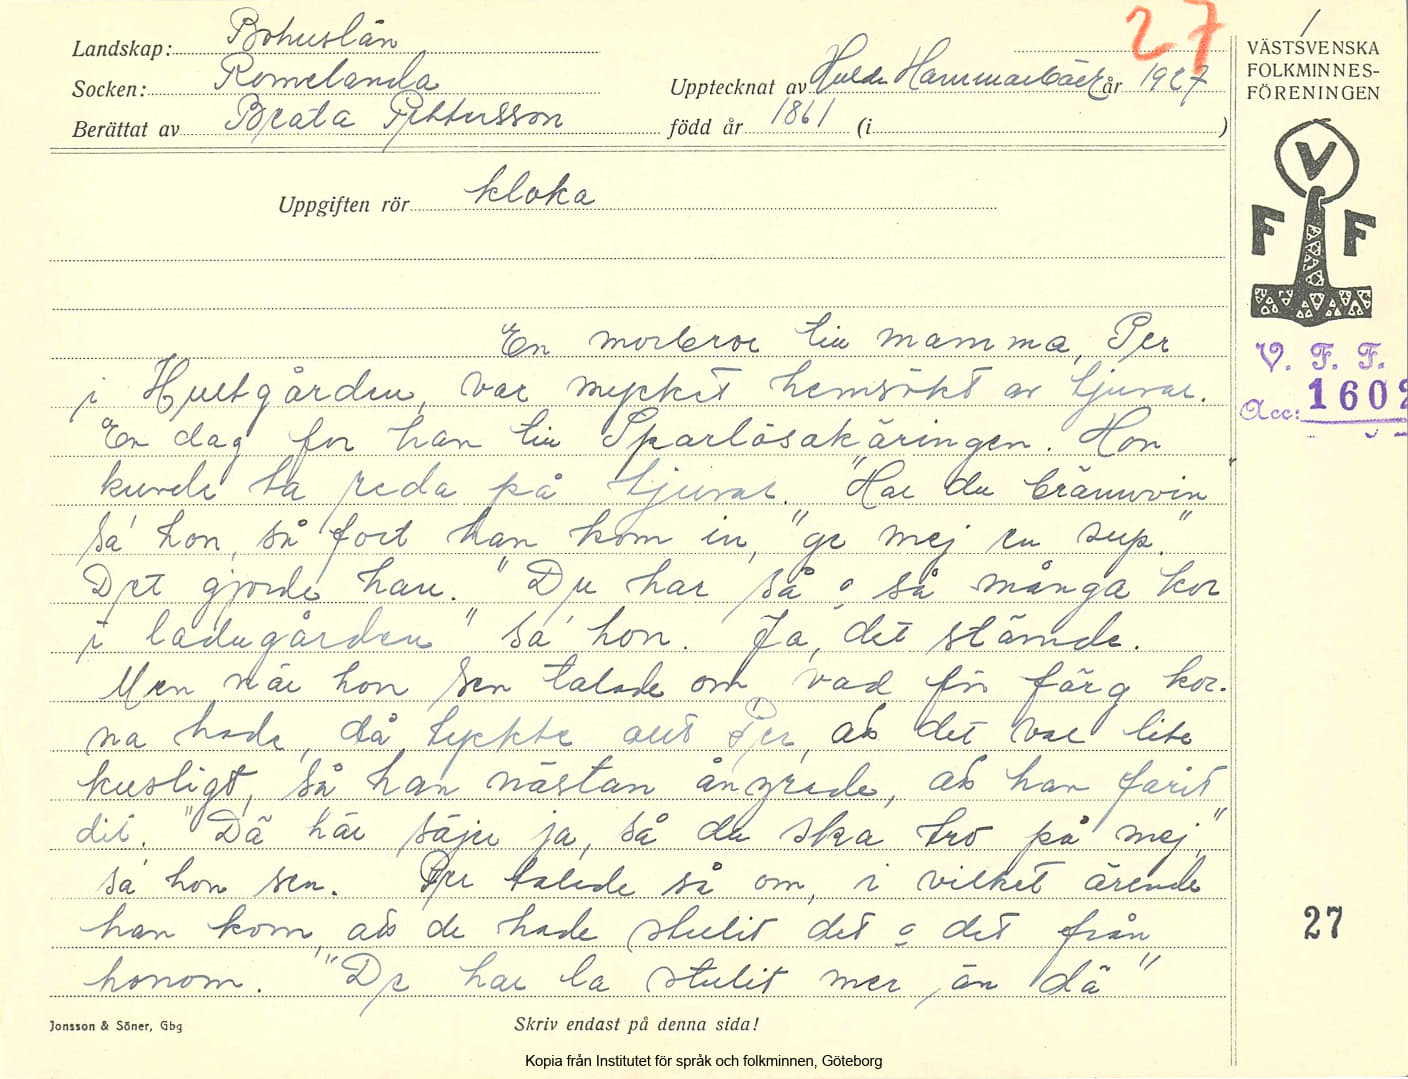 27
Landskap: Bohuslän
Socken: Romelanda
Upptecknat av Hulda Hammarbäck år 1927
Berättat av Beata Pettersson född år 1861 (i )
Uppgiften rör kloka
En morbror till mamma, Per
i Hultgården, var mycket hemsökt av tjuvar.
En dag for han till Sparlösakäringen. Hon
kunde ta reda på tjuvar. "Har du brännvin"
sa' hon, så fort han kom in, "ge mej en sup."
Det gjorde han. "Du har så o så många kor
i ladugården" sa' hon. Ja, det stämde.
Men när hon sen talade om vad för färg kor-
na hade, då tyckte allt Per, att det var lite
kusligt, så han nästan ångrade, att han farit
dit. "Dä här säjer ja, så du ska tro på mej,"
sa' hon sen. Per talade så om, i vilket ärende
han kom, att de hade stulit det o det från
honom. "De har la stulit mer än dä"
Jonsson & Söner, Gbg
Skriv endast på denna sida!
VÄSTSVENSKA
FOLKMINNES-
FÖRENINGEN
V
F F
V. F. F.
Acc: 1602
27
Kopia från Institutet för språk och folkminnen, Göteborg